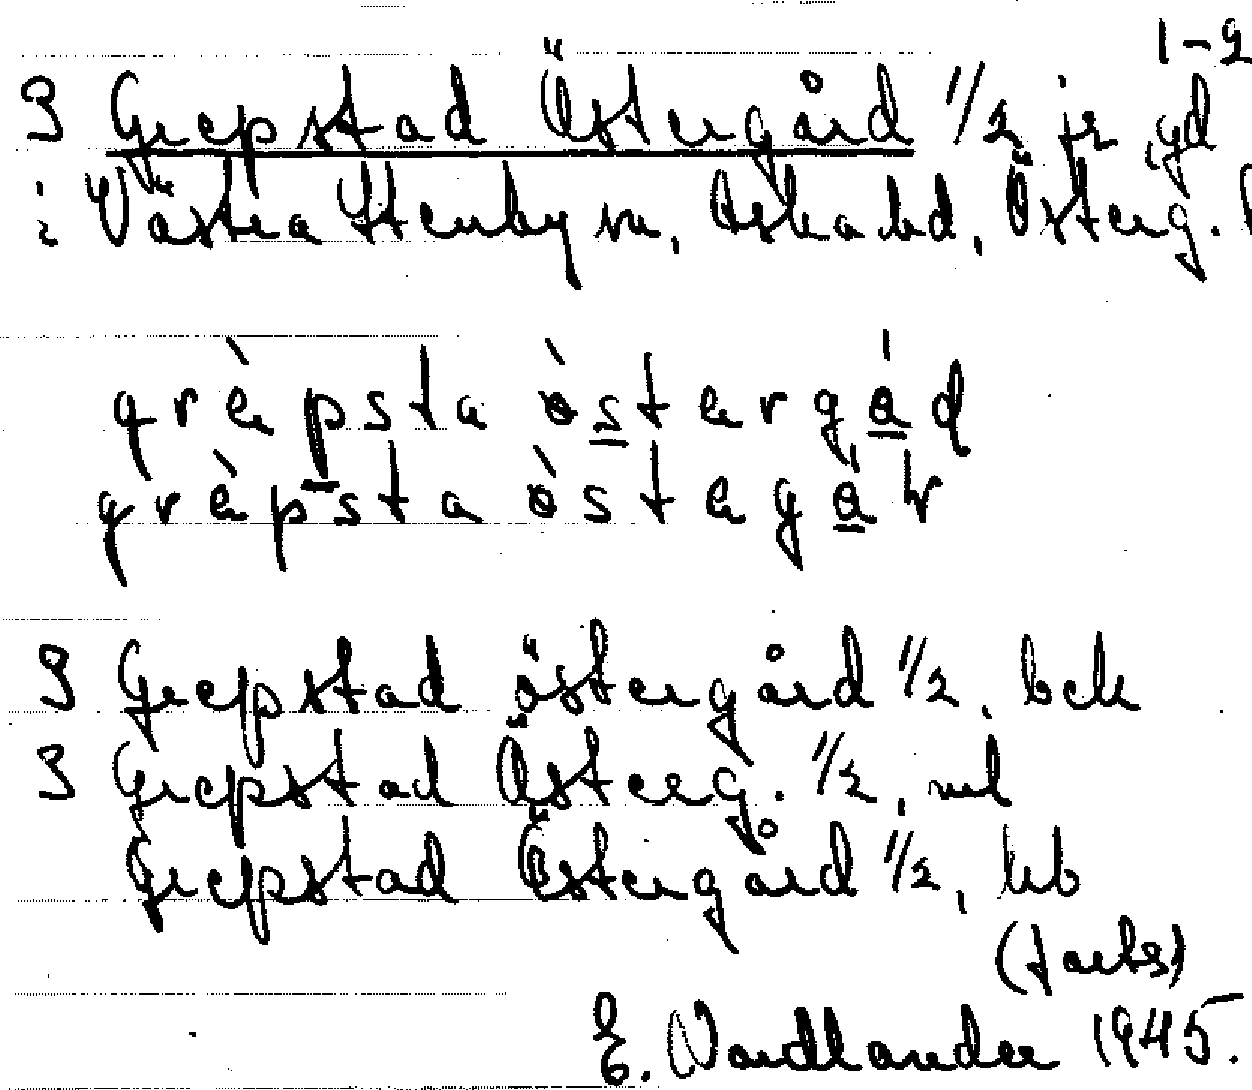 1-2
3 Grepstad Östergård 1/2 jr, gd
i Västra Stenby sn, Aska hd, Österg. l
grèpsta òstergá̱d
grèpsta òstegá̱r
3 Grepstad östergård 1/2, bck
3 Grepstad Österg. 1/2, ml
Grepstad Östergård 1/2, kb
E. Nordlander 1945.